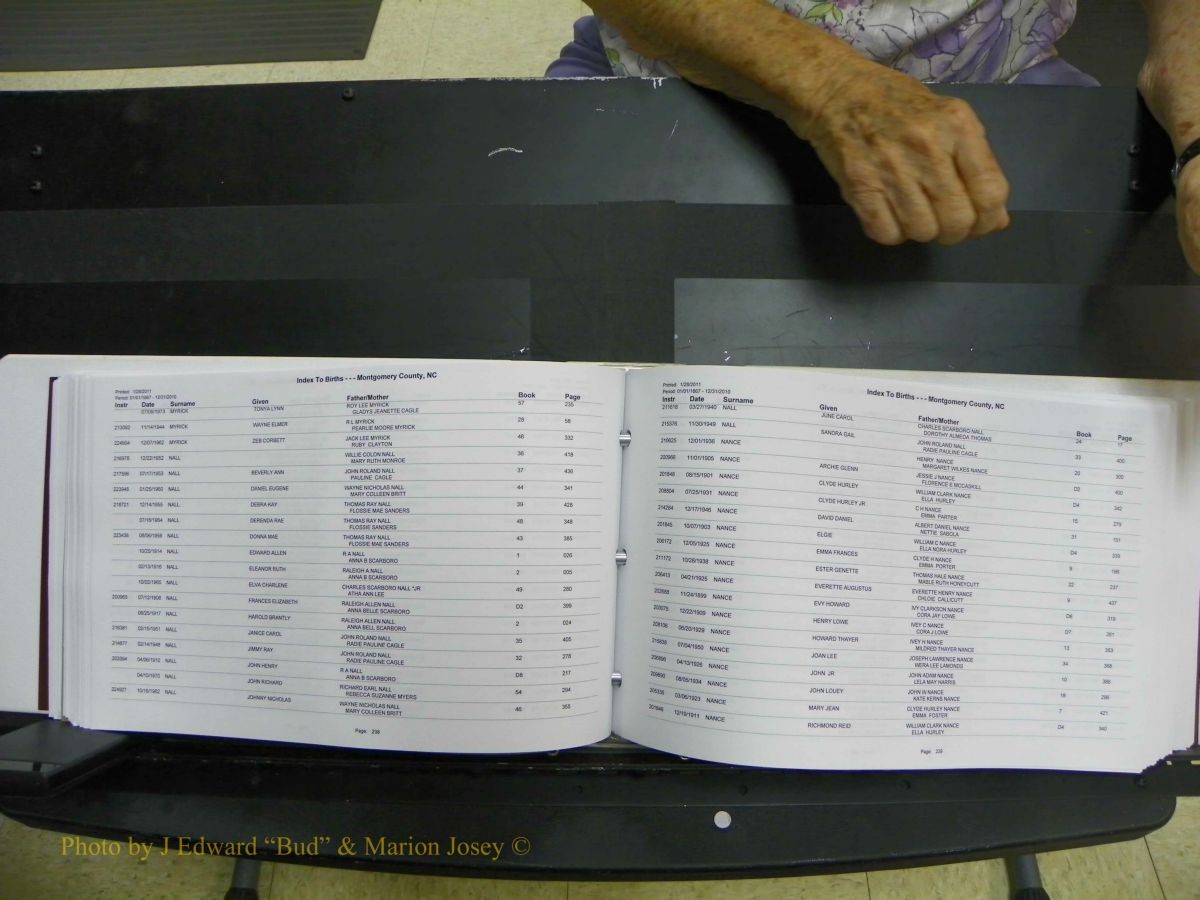 Index To Births - - - Montgomery County, NC
Printed: 1/28/2011
Period: 01/01/1867 - 12/31/2010
Instr Date Surname Given Father/Mother Book Page
07/09/1973 MYRICK TONYA LYNN ROY LEE MYRICK 57 235
GLADYS JEANETTE CAGLE
213092 11/14/1944 MYRICK WAYNE ELMER R L MYRICK 28 58
PEARLIE MOORE MYRICK
224604 12/07/1962 MYRICK ZEB CORBETT JACK LEE MYRICK 46 332
RUBY CLAYTON
216978 12/22/1952 NALL WILLIE COLON NALL 36 418
MARY RUTH MONROE
217596 07/17/1953 NALL BEVERLY ANN JOHN ROLAND NALL 37 436
PAULINE CAGLE
223945 01/25/1960 NALL DANIEL EUGENE WAYNE NICHOLAS NALL 44 341
MARY COLLEEN BRITT
218721 12/14/1955 NALL DEBRA KAY THOMAS RAY NALL 39 428
FLOSSIE MAE SANDERS
07/18/1964 NALL DERENDA RAE THOMAS RAY NALL 48 348
FLOSSIE SANDERS
223436 08/06/1959 NALL DONNA MAE THOMAS RAY NALL 43 385
FLOSSIE MAE SANDERS
10/25/1914 NALL EDWARD ALLEN R A NALL 1 026
ANNA B SCARBORO
02/13/1916 NALL ELEANOR RUTH RALEIGH A NALL 2 005
ANNA B SCARBORO
10/02/1965 NALL ELVA CHARLENE CHARLES SCARBORO NALL *JR 49 280
ATHA ANN LEE
200965 07/12/1908 NALL FRANCES ELIZABETH RALEIGH ALLEN NALL D2 399
ANNA BELLE SCARBORO
08/25/1917 NALL HAROLD BRANTLY RALEIGH ALLEN NALL 2 024
ANNA BELL SCARBORO
216381 02/15/1951 NALL JANICE CAROL JOHN ROLAND NALL 35 405
RADIE PAULINE CAGLE
214877 02/14/1948 NALL JIMMY RAY JOHN ROLAND NALL 32 278
RADIE PAULINE CAGLE
203394 04/06/1910 NALL JOHN HENRY R A NALL D8 217
ANNA B SCARBORO
04/10/1970 NALL JOHN RICHARD RICHARD EARL NALL 54 294
REBECCA SUZANNE MYERS
224927 10/16/1962 NALL JOHNNY NICHOLAS WAYNE NICHOLAS NALL 46 355
MARY COLLEEN BRITT
Page: 238
Printed: 1/28/2011
Period: 01/01/1867 - 12/31/2010
Index To Births - - - Montgomery County, NC
Instr Date Surname Given Father/Mother Book Page
211618 03/27/1940 NALL JUNE CAROL CHARLES SCARBORO NALL 24 17
DOROTHY ALMEDA THOMAS
215376 11/30/1949 NALL SANDRA GAIL JOHN ROLAND NALL 33 400
RADIE PAULINE CAGLE
210625 12/01/1936 NANCE HENRY NANCE 20 300
MARGARET WILKES NANCE
200966 11/01/1905 NANCE ARCHIE GLENN JESSIE J NANCE D2 400
FLORENCE E MCCASKILL
201848 08/15/1901 NANCE CLYDE HURLEY WILLIAM CLARK NANCE D4 342
ELLA HURLEY
208504 07/25/1931 NANCE CLYDE HURLEY JR C H NANCE 15 279
EMMA PARTER
214284 12/17/1946 NANCE DAVID DANIEL ALBERT DANIEL NANCE 31 151
NETTIE SABOLA
201845 10/07/1903 NANCE ELGIE WILLIAM C NANCE D4 339
ELLA NORA HURLEY
206172 12/05/1925 NANCE EMMA FRANCES CLYDE H NANCE 9 186
EMMA PORTER
211172 10/28/1938 NANCE ESTER GENETTE THOMAS HALE NANCE 22 237
MABLE RUTH HONEYCUTT
206413 04/21/1925 NANCE EVERETTE AUGUSTUS EVERETTE HENRY NANCE 9 437
CHLOIE CALLICUTT
202668 11/24/1899 NANCE EVY HOWARD IVY CLARKSON NANCE D6 319
CORA JAY LOWE
203075 12/22/1909 NANCE HENRY LOWE IVEY C NANCE D7 361
CORA J LOWE
208106 06/20/1929 NANCE HOWARD THAYER IVEY H NANCE 13 363
MILDRED THAYER NANCE
215838 07/04/1950 NANCE JOAN LEE JOSEPH LAWRENCE NANCE 34 368
WERA LEE LAMONDS
206896 04/13/1926 NANCE JOHN JR JOHN ADAM NANCE 10 386
LELA MAY HARRIS
209890 08/05/1934 NANCE JOHN LOUEY JOHN W NANCE 18 299
KATE KERNS NANCE
205335 03/06/1923 NANCE MARY JEAN CLYDE HURLEY NANCE 7 421
EMMA FOSTER
201846 12/19/1911 NANCE RICHMOND REID WILLIAM CLARK NANCE D4 340
ELLA HURLEY
Page: 239
Photo by J Edward “Bud” & Marion Josey ©